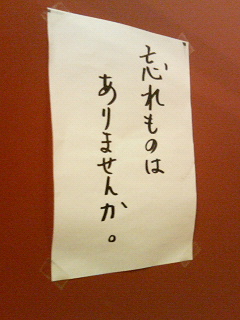 忘れものは
ありませんか。